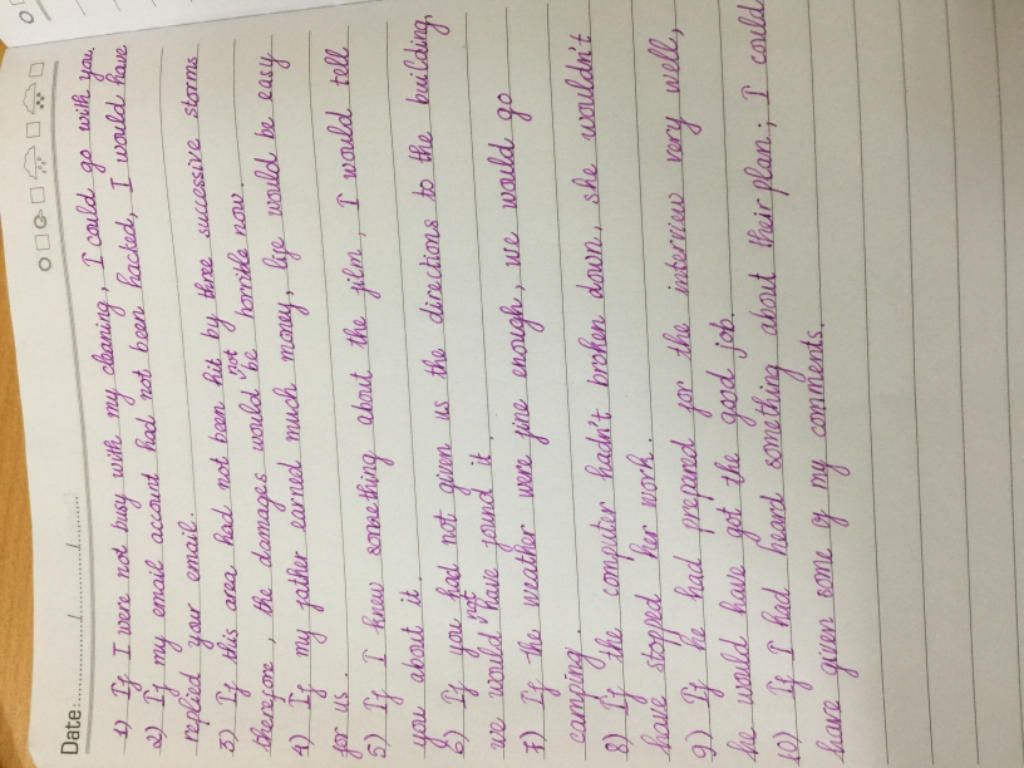 Date:
1) If I were not busy with my cleaning, I could go with you.
2) If my email account had not been hacked, I would have
replied your email.
3) If this area had not been hit by three successive storms
therefore, the damages would not be horrible now.
4) If my father earned much money, life would be easy
for us.
5) If I knew something about the film, I would tell
you about it.
6) If you had not given us the directions to the building,
we would not have found it.
7) If the weather were fine enough, we would go
camping.
8) If the computer hadn't broken down, she wouldn't
have stopped her work.
9) If he had prepared for the interview very well,
he would have got the good job.
10) If I had heard something about their plan; I could
have given some of my comments.